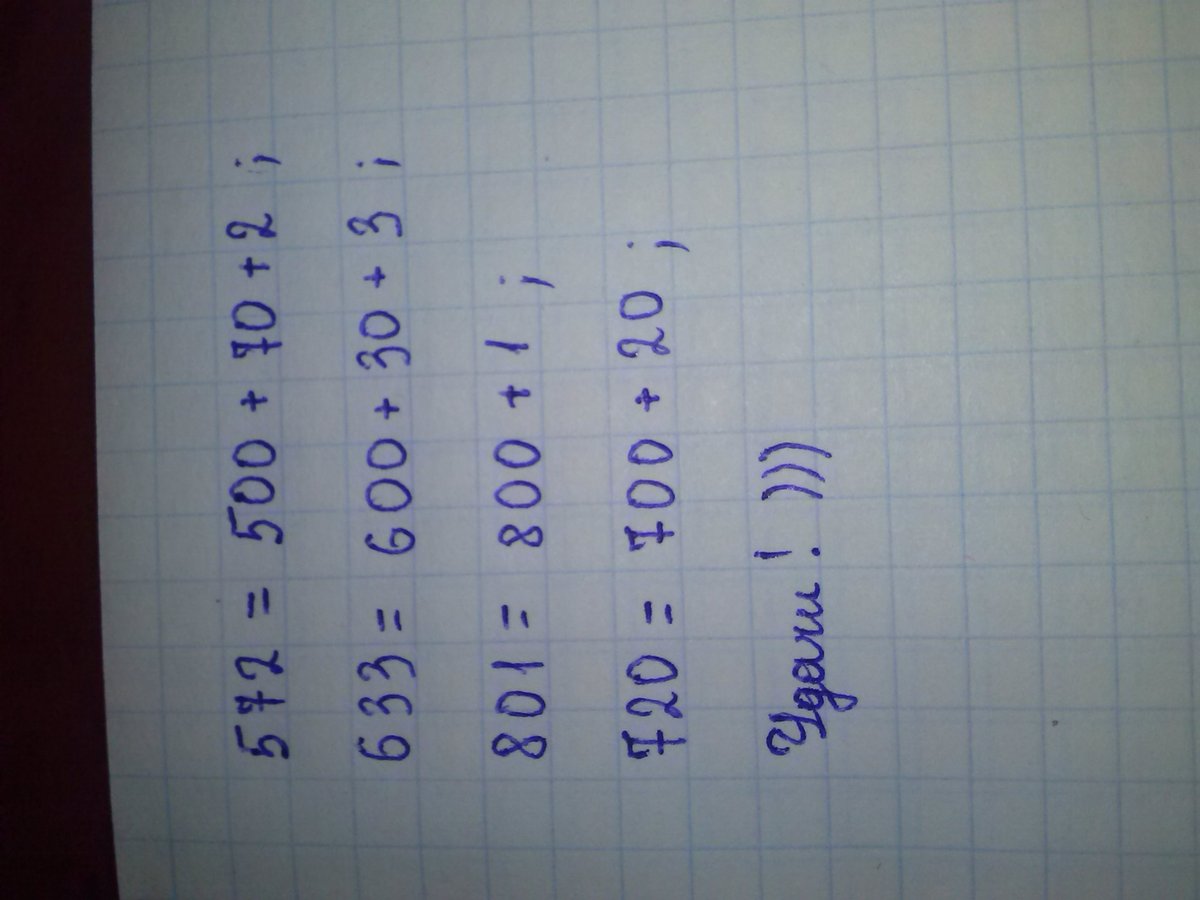 572 = 500 + 70 + 2 ;
633 = 600 + 30 + 3 ;
801 = 800 + 1 ;
720 = 700 + 20 ;
Удачи! )))